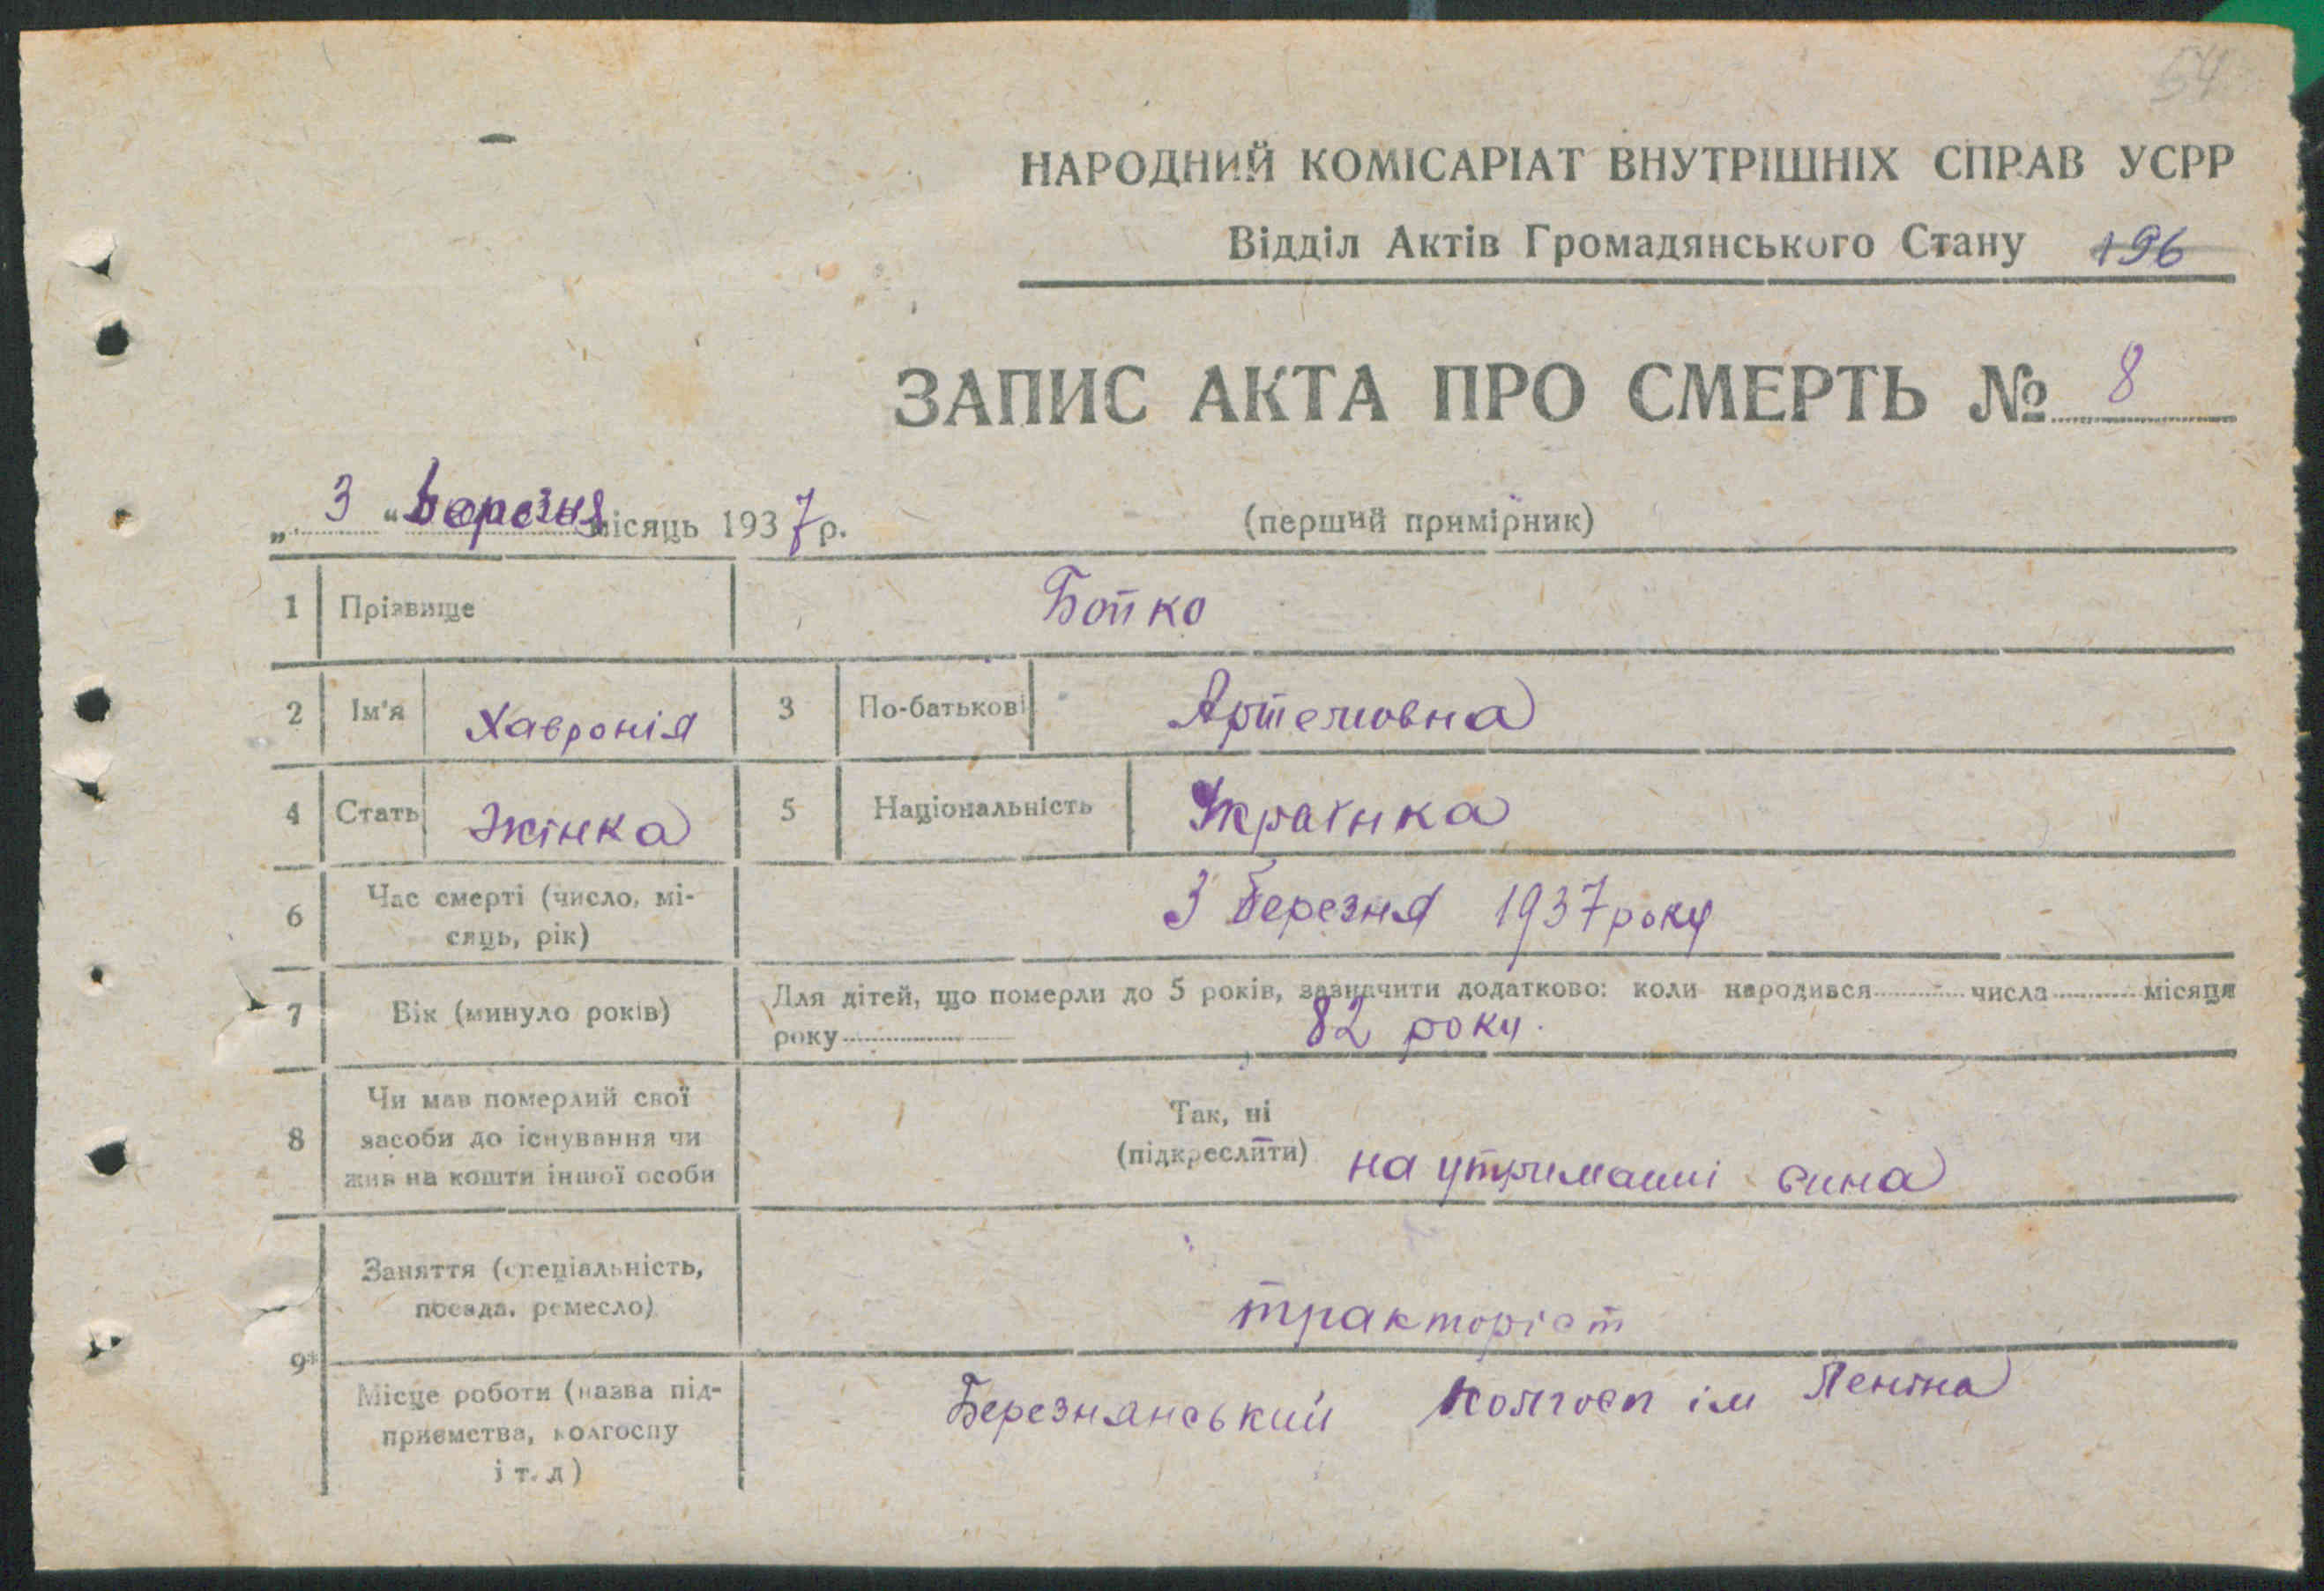 54
НАРОДНИЙ КОМІСАРІАТ ВНУТРІШНІХ СПРАВ УСРР
Відділ Актів Громадянського Стану 196
ЗАПИС АКТА ПРО СМЕРТЬ № 8
„ 3 “ березня місяць 1937 р. (перший примірник)
1 Прізвище Бойко
2 Ім'я Хавронія 3 По-батькові Артемовна
4 Стать Жінка 5 Національність Українка
6 Час смерті (число, мі-
сяць, рік) 3 березня 1937 року
7 Вік (минуло років) Для дітей, що померли до 5 років, зазначити додатково: коли народився числа місяця
року 82 роки.
8 Чи мав померлий свої
засоби до існування чи
жив на кошти іншої особи
Так, ні
(підкреслити) на утриманні сина
9* Заняття (спеціальність,
посада, ремесло) тракторіст
Місце роботи (назва під-
приємства, колгоспу
і т. д) Березнянський колгосп ім Леніна